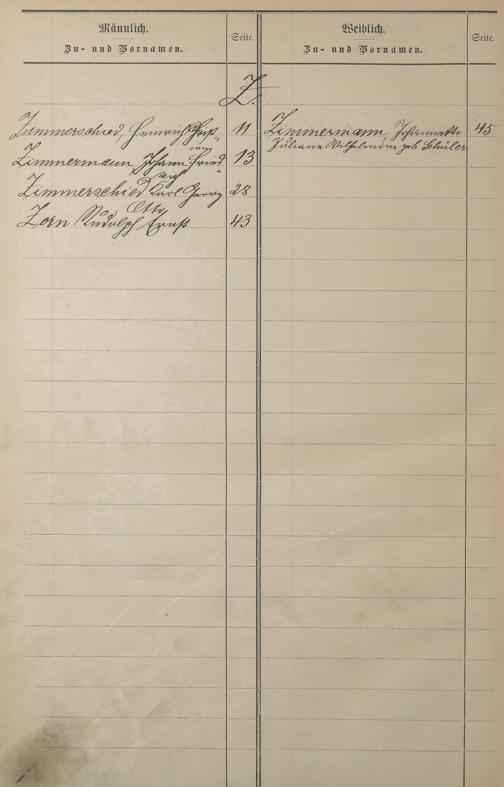 Männlich.
Zu- und Vornamen.
Seite.
Weiblich.
Zu- und Vornamen.
Seite.
Z.
Zimmerschied, Heinrich 11
Zimmermann Johann Fried 13
rich
Zimmerschied Karl Georg 28
Otto
Zorn Rudolph Ernst 43
Zimmermann, Johannette 45
Juliane Wilhelmine geb. Schüler